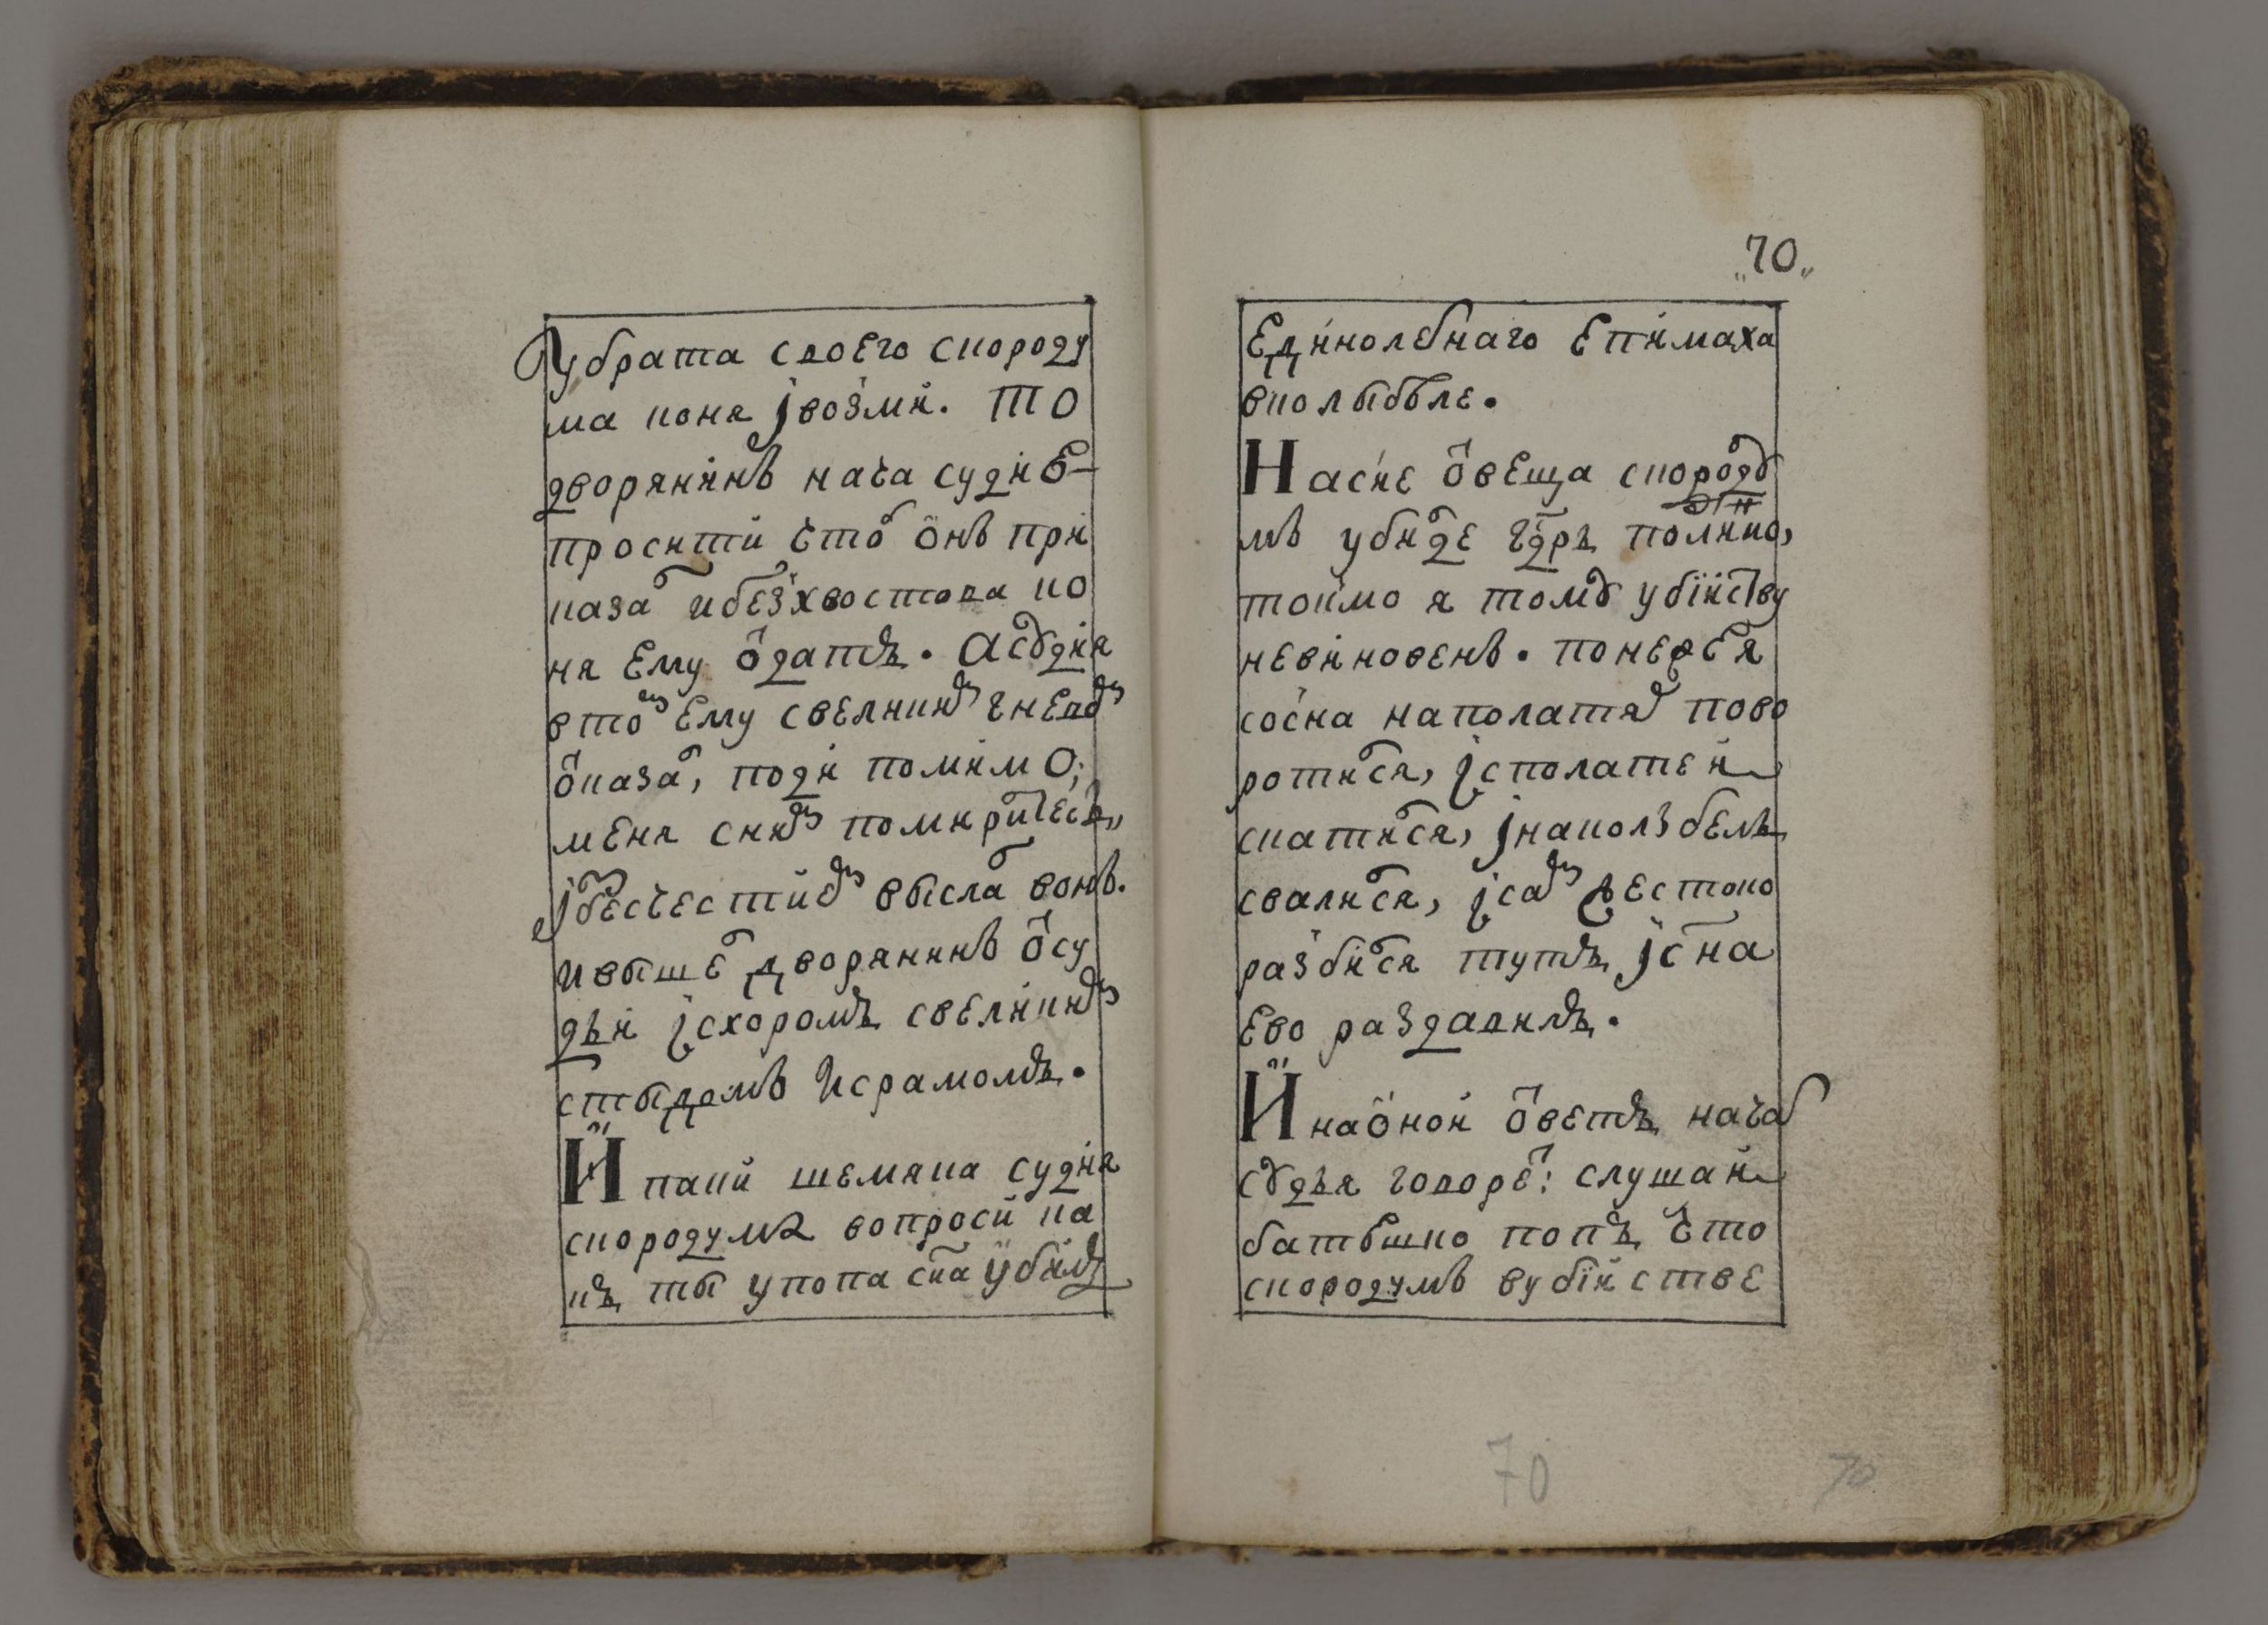 у брата своего скороду
ма коня јвозми. то
дворянинъ нача судиѣ
просити чтоб онъ при
казал и безхвостова ко
ня ему ѿдать. а судия
в том ему с великим гневом
ѿказал, поди помимо;
меня с ним помиритесь,
ј с бесчестием выслал вонъ.
и вышед дворянинъ ѿ су
дьи јс хоромъ с великим
стыдомъ и срамомъ.
И паки шемяка судия
скородума вопросил ка
къ ты у попа сна убилъ
70
единолетнаго епимаха
в колыбѣле.
На сие ѿвеща скороду
мъ убиде гдрь
токмо я тому убийству
невиновенъ. понеже я
со сна на полатях пово
ротился, јс полатей
скатился, ј на колыбель
свалился, јсам жестоко
разбился тутъ ј сна
ево раздавилъ.
И на оной ѿветъ начал
судья говорет: слушай
батюшко попъ что
скородумъ в убийстве
70
70